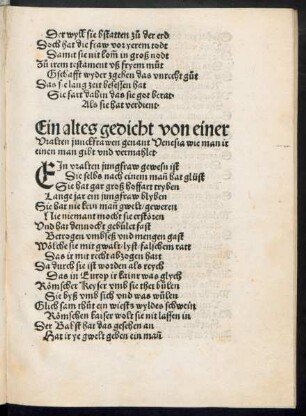 Der wyll sie bstatten zů der erd
Doch hat die fraw vor yerem todt
Damit sie nit kom̃ in groß nodt
Zů irem testament vß fryem můt
Gschafft wyder zgeben das vnrecht gůt
Das sie lang zeit besessen hat
Sie fart dahin das sie got berat
Als sie hat verdient.
Ein altes gedicht von einer
Vralten junckfrawen genant Venesia wie man it
einen man gibt vnd vermahlet
EIn vralten jungfraw gewesn ist
Die selbs nach einem mañ hat glüst
Sie hat gar groß hoffart tryben
Lange jar ein jungfraw blyben
Sie hat nie kein mañ gwelt geweren
Nie niemant mocht sie erstören
Vnd hat dennocht gebület fast
Betrogen vmbseß vnd mengen gast
Wölche sie mit gwalt lyst falschem ratt
Das ir mit recht abzogen hatt
Da durch sie ist worden als reych
Das in Europ ir kaine was glych
Römscher Keyser vmb sie thet bülen
Sie byß vmb sich vnd was wülen
Glich sam thůt ein wiests wyldes schwein
Römschen kaiser wolt sie nit lassen in
Der Babst hat das gesehen an
Hat ir ye gwelt geben ein mañ